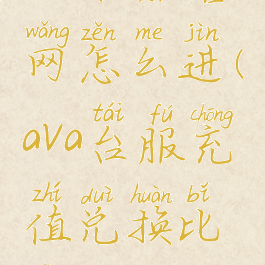 wǎng zěn me jìn
网怎么进(
tái fú chōng
ava台服充
zhí duì huàn bǐ
值兑换比